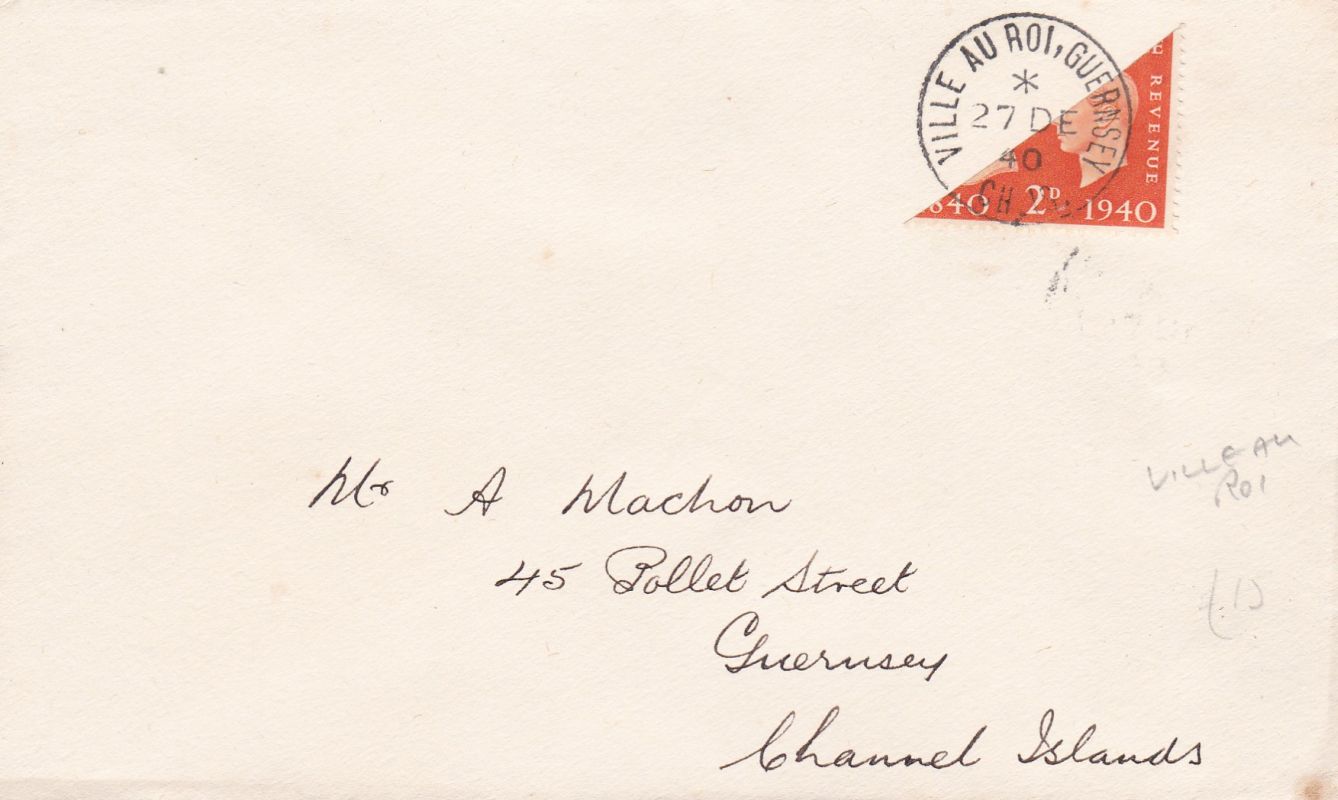 VILLE AU ROI, GUERNSEY
*
27 DE
40
CH
E REVENUE
1840 2D 1940
Mr A Machon
45 Pollet Street
Guernsey
Channel Islands
VILLE AU
ROI